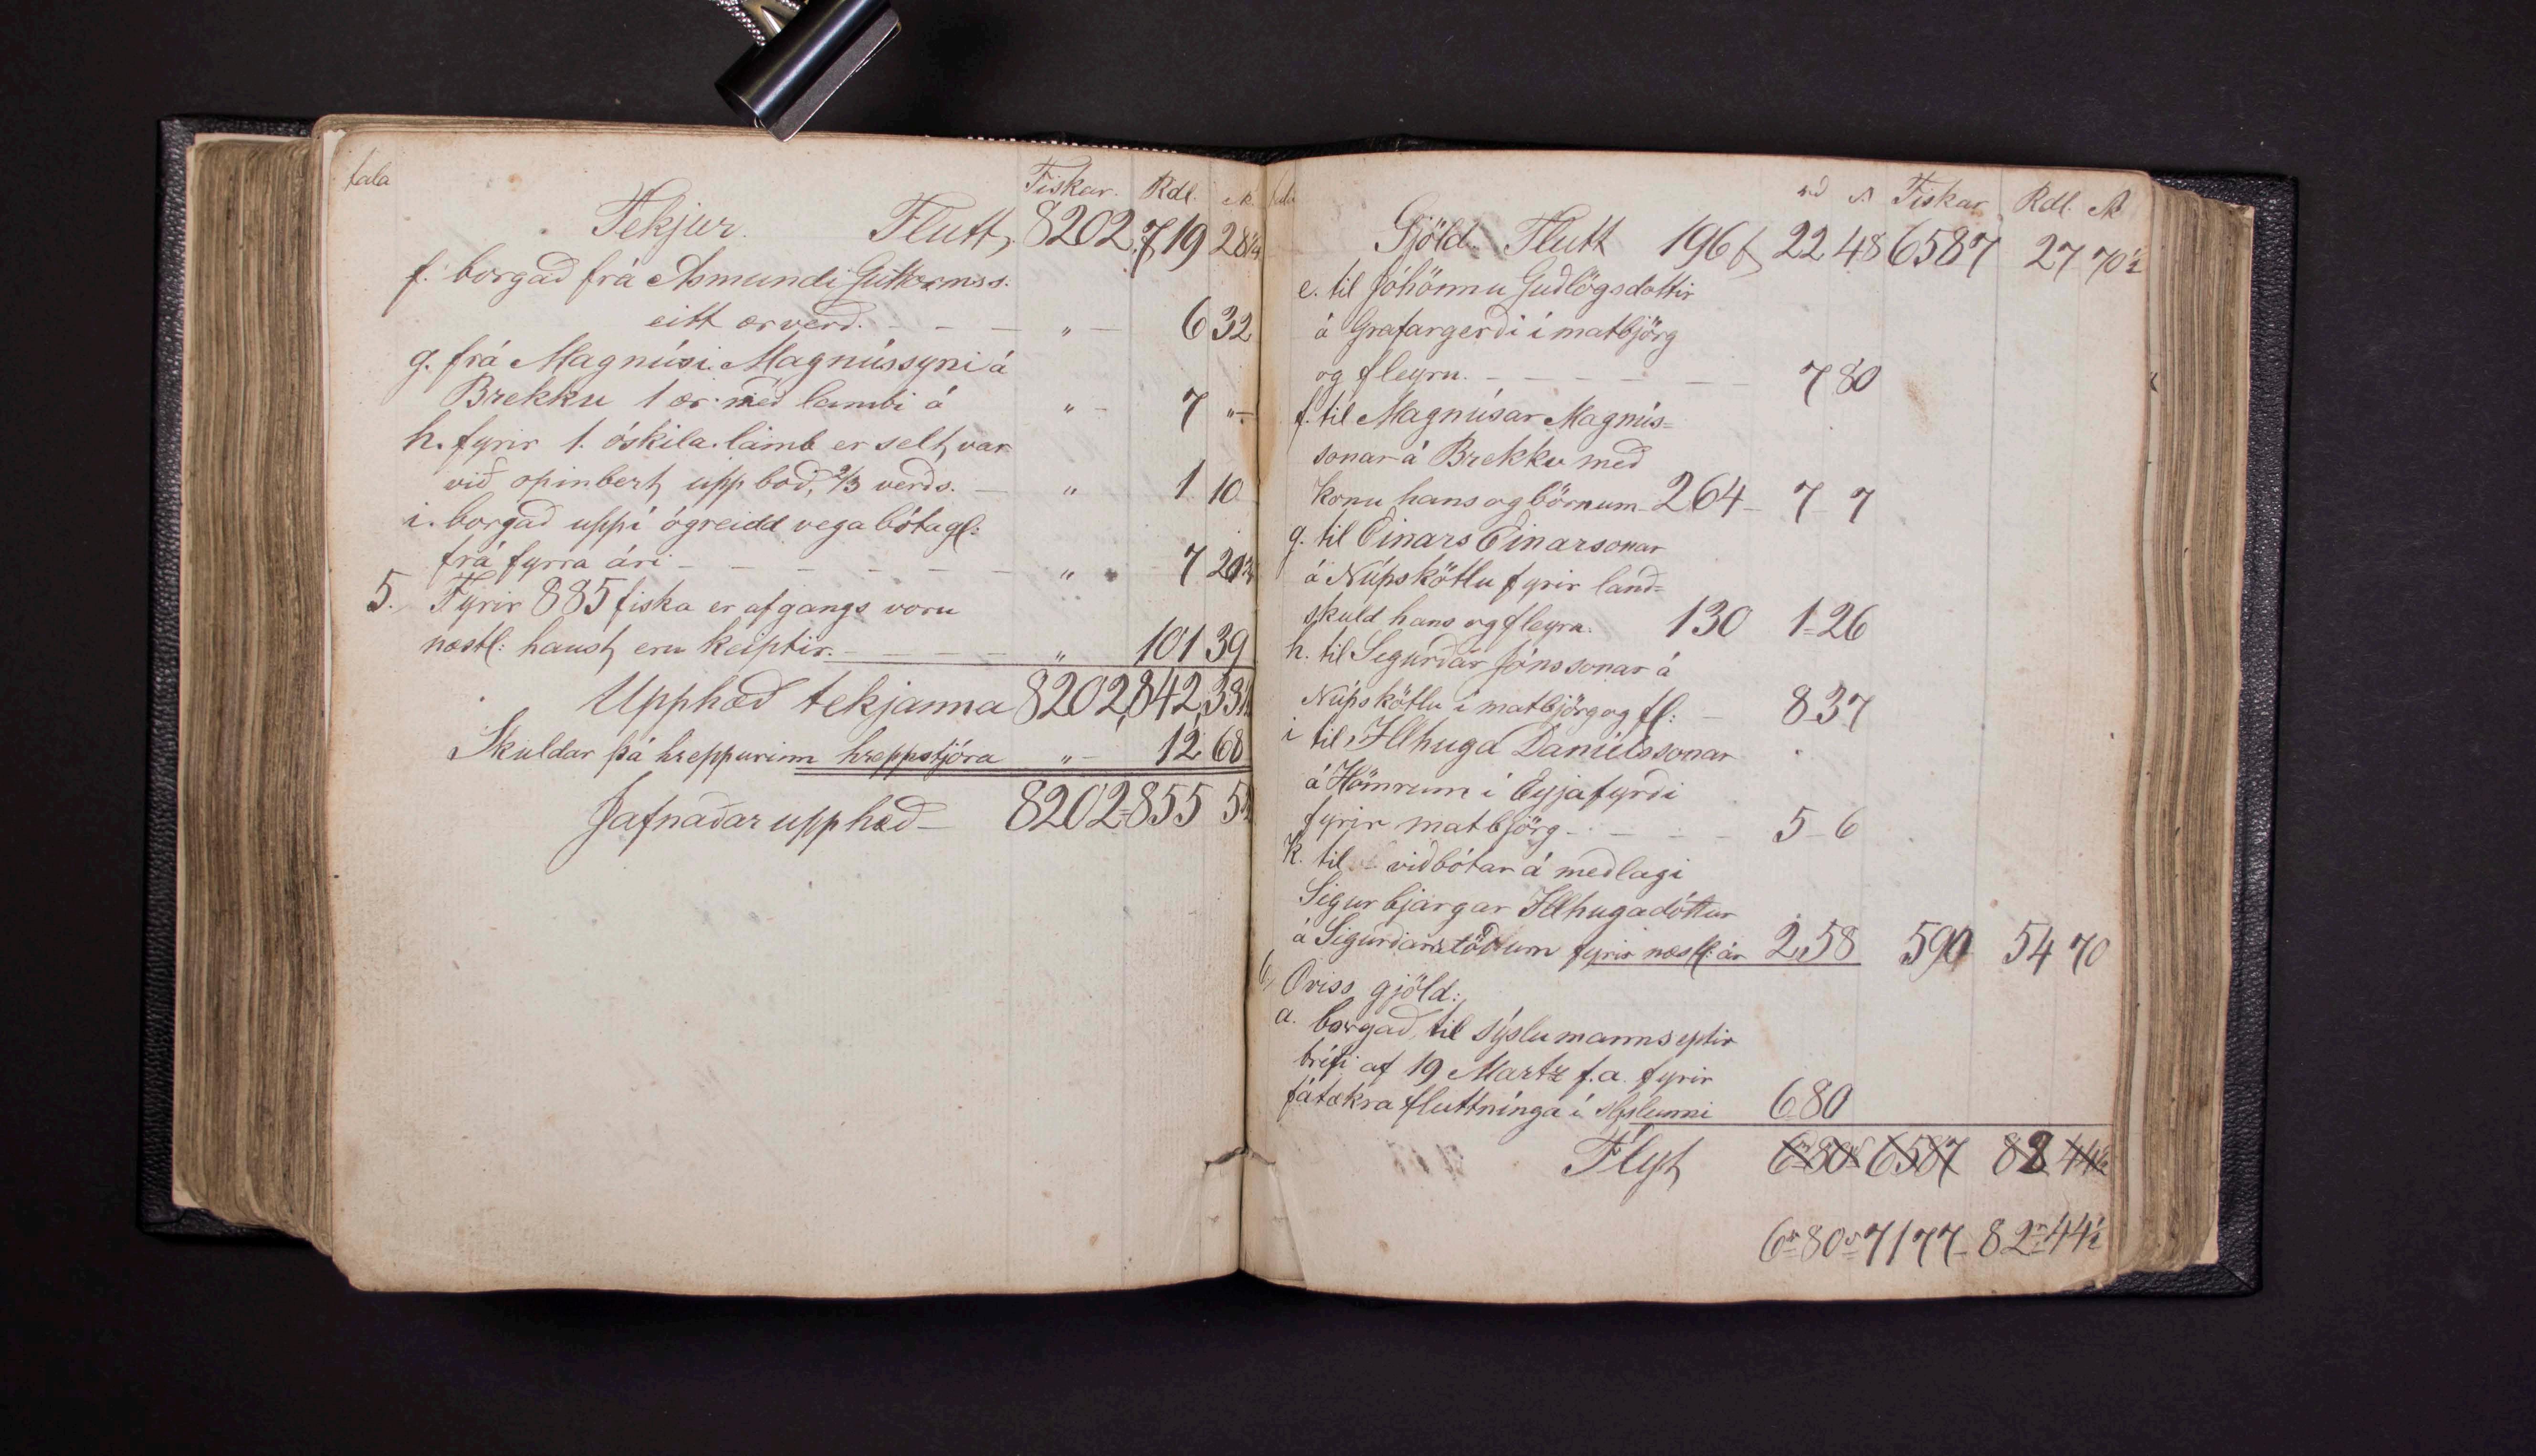 tala Fiskar. Rdl. sk
Tekjur. Flutt, 8202 719 28 1/4
f. borgað frá Asmundi Guttormss.
eitt ærverð. - - - „ - 6 32
g. frá Magnúsi Magnússyni á
Brekku 1 ær með lambi á „ - 7 „-
h. fyrir 1. óskila lamb er selt var
við opinbert uppboð, 2/3 verðs. - „ 1 10
i. borgað uppí ógreidd vega bótagl:
frá fyrra ári - - - - - - - „ - 7 20
5. Fyrir 885 fiska er afgangs voru
næstl: haust, eru keiptir. - - - - „ 101 39
Upphæð tekjanna 8202, 842, 33
Skuldar þá hreppurinn hreppstjóra „ - 12 68
Jafnaðar upphæð - 8202 - 855 5
tala rd s Fiskar Rdl. sk
Gjöld. Flutt 196 f 22 48 6587 27 70 1/2
e. til Jóhönnu Guðlögsdottir
á Grafargerði í matbjörg
og fleyru. - - - - - - 7 80
f. til Magnúsar Magnús=
sonar á Brekku með
konu hans og börnum - 264 - 7 7
g. til Einars Einarsonar
á Núpskötlu fyrir land=
skuld hans og fleyra. 130 1 - 26
h. til Sigurðar Jónssonar á
Núpskötlu í matbjörg og fl: - 8 37
i til Illhuga Daníelssonar
á Hömrum í Eyjafyrði
fyrir matbjörg - - - - 5 - 6
K. til viðbótar á meðlagi
Sigurbjargar Illhugadóttur
á Sigurðarstöðum fyrir næstl: ár 2,58 590 54 70
6, Oviss gjöld:
a. borgað, til sýslumanns eptir
bréfi af 19 Martz f.a. fyrir
fátækra fluttnínga í sýslunni 6 80
Flyt 6 80 6587 82 44 1/2
6 r 80 s 7177 - 82 r 44 1/2